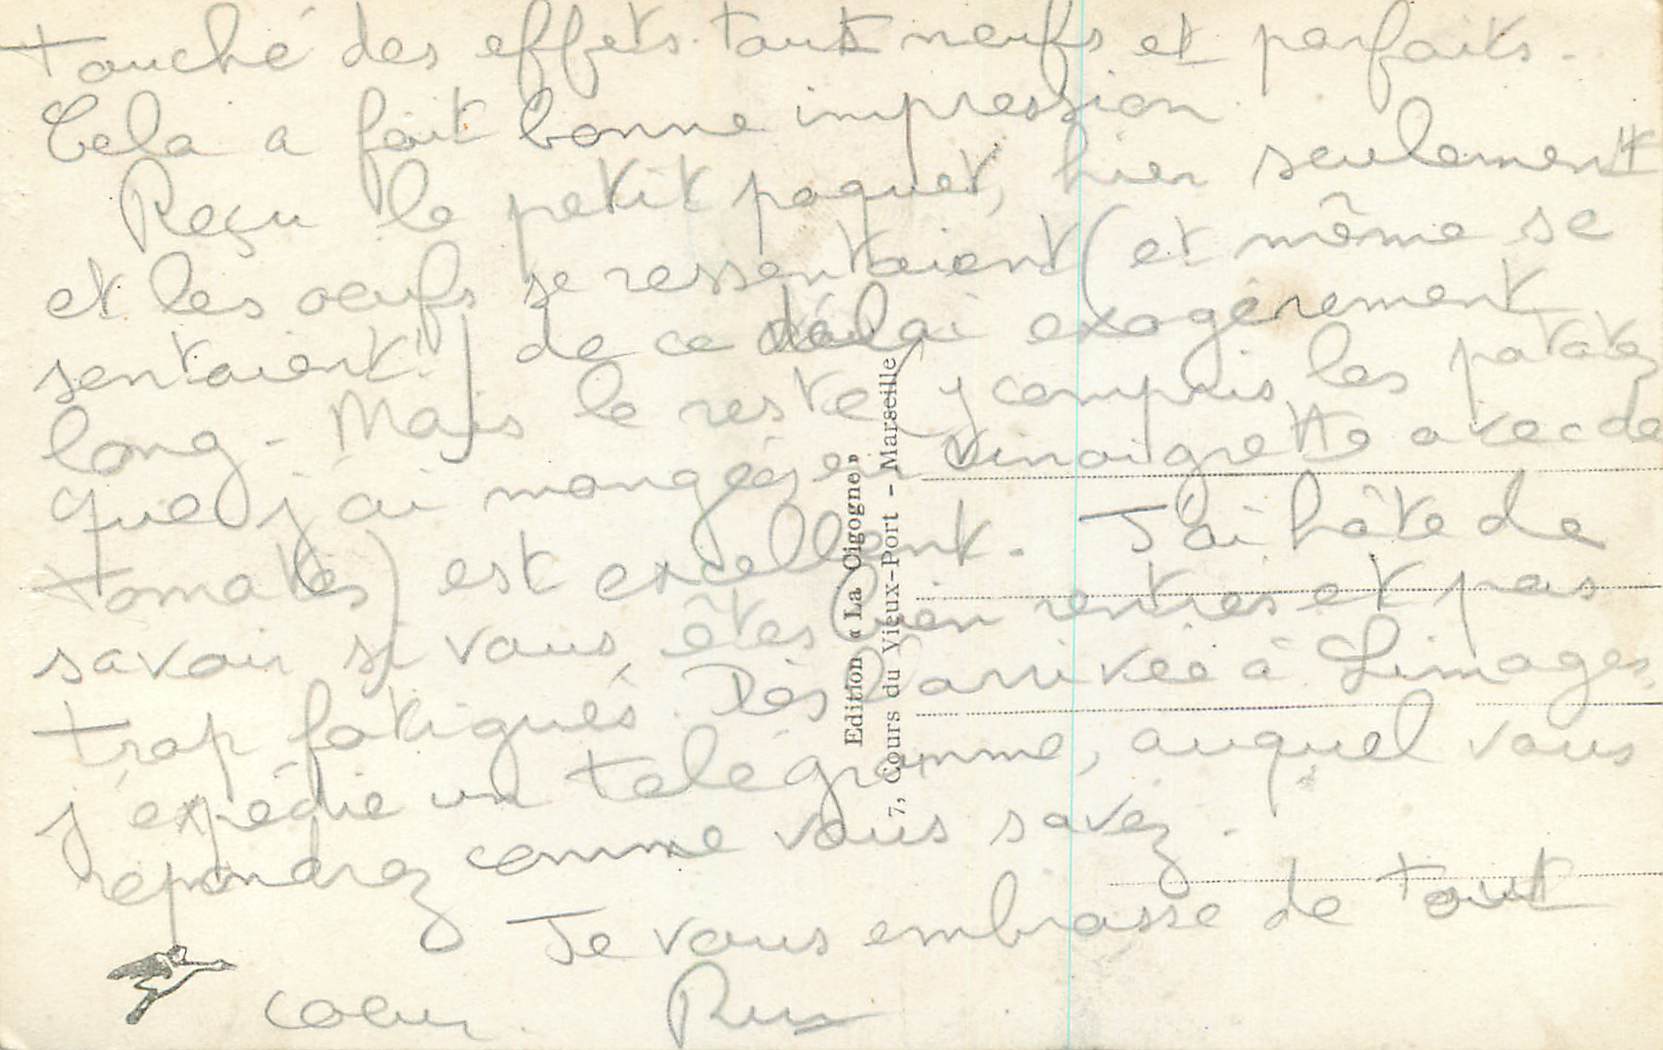 touché des effets tout neufs et parfaits.
Cela a fait bonne impression.
Reçu le petit paquet, hier seulement
et les oeufs se ressentaient (et même se
sentaient !) de ce délai exagérement
long. Mais le reste (y compris les patates
que j'ai mangées en vinaigrette avec de
tomates) est excellent. J'ai hâte de
savoir si vous êtes bien rentrés et pas
trop fatigués. Dès l'arrivée à Limoges,
j'expédie un télégramme, auquel vous
répondrez comme vous savez.
Je vous embrasse de tout
coeur.
Edition « La Cigogne »
7, Cours du Vieux-Port - Marseille